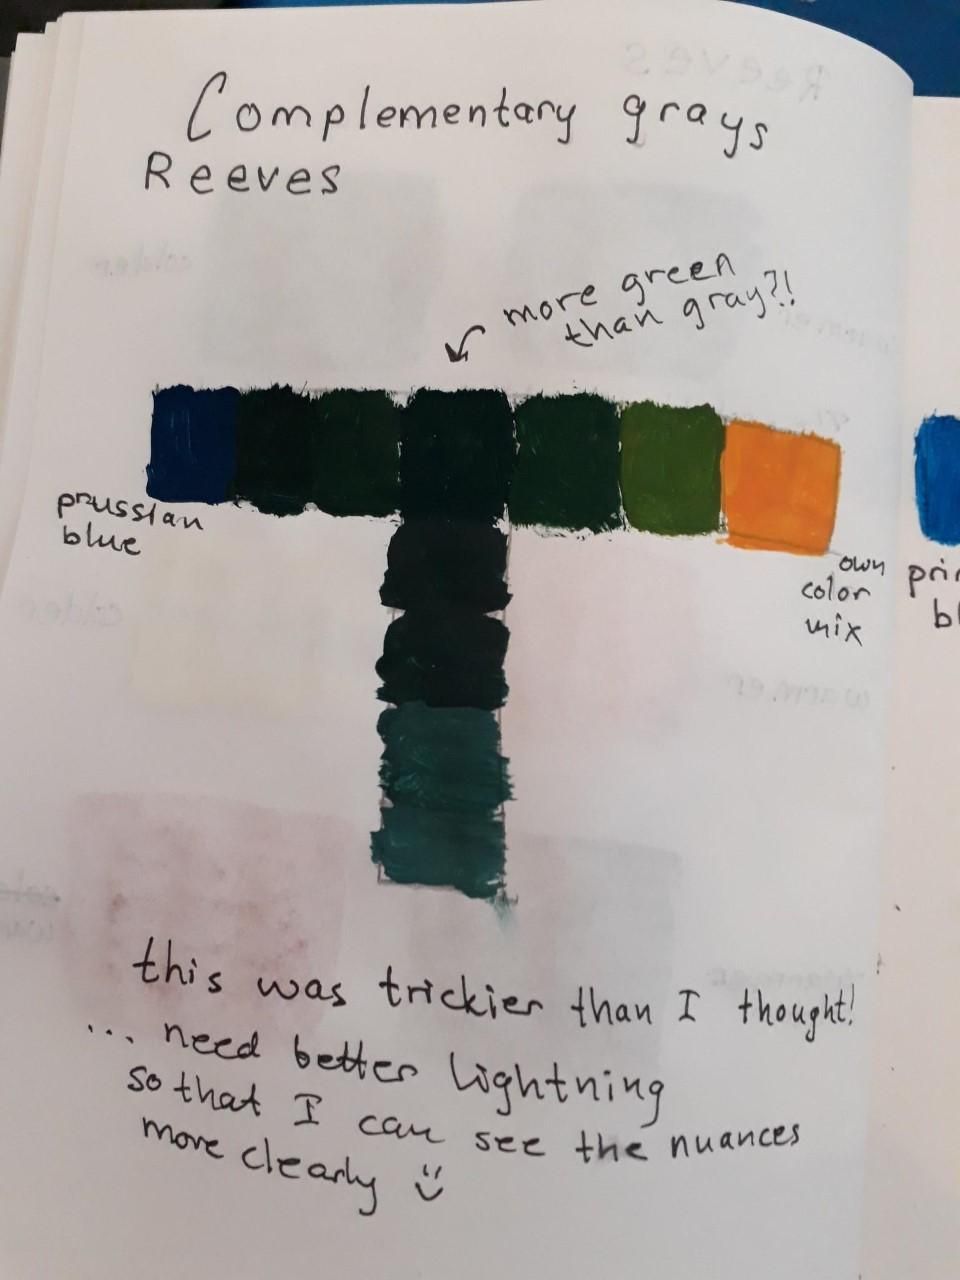 Complementary grays
Reeves
more green
than gray?!
prussian
blue
own
color
mix
this was trickier than I thought!
... need better lightning
so that I can see the nuances
more clearly